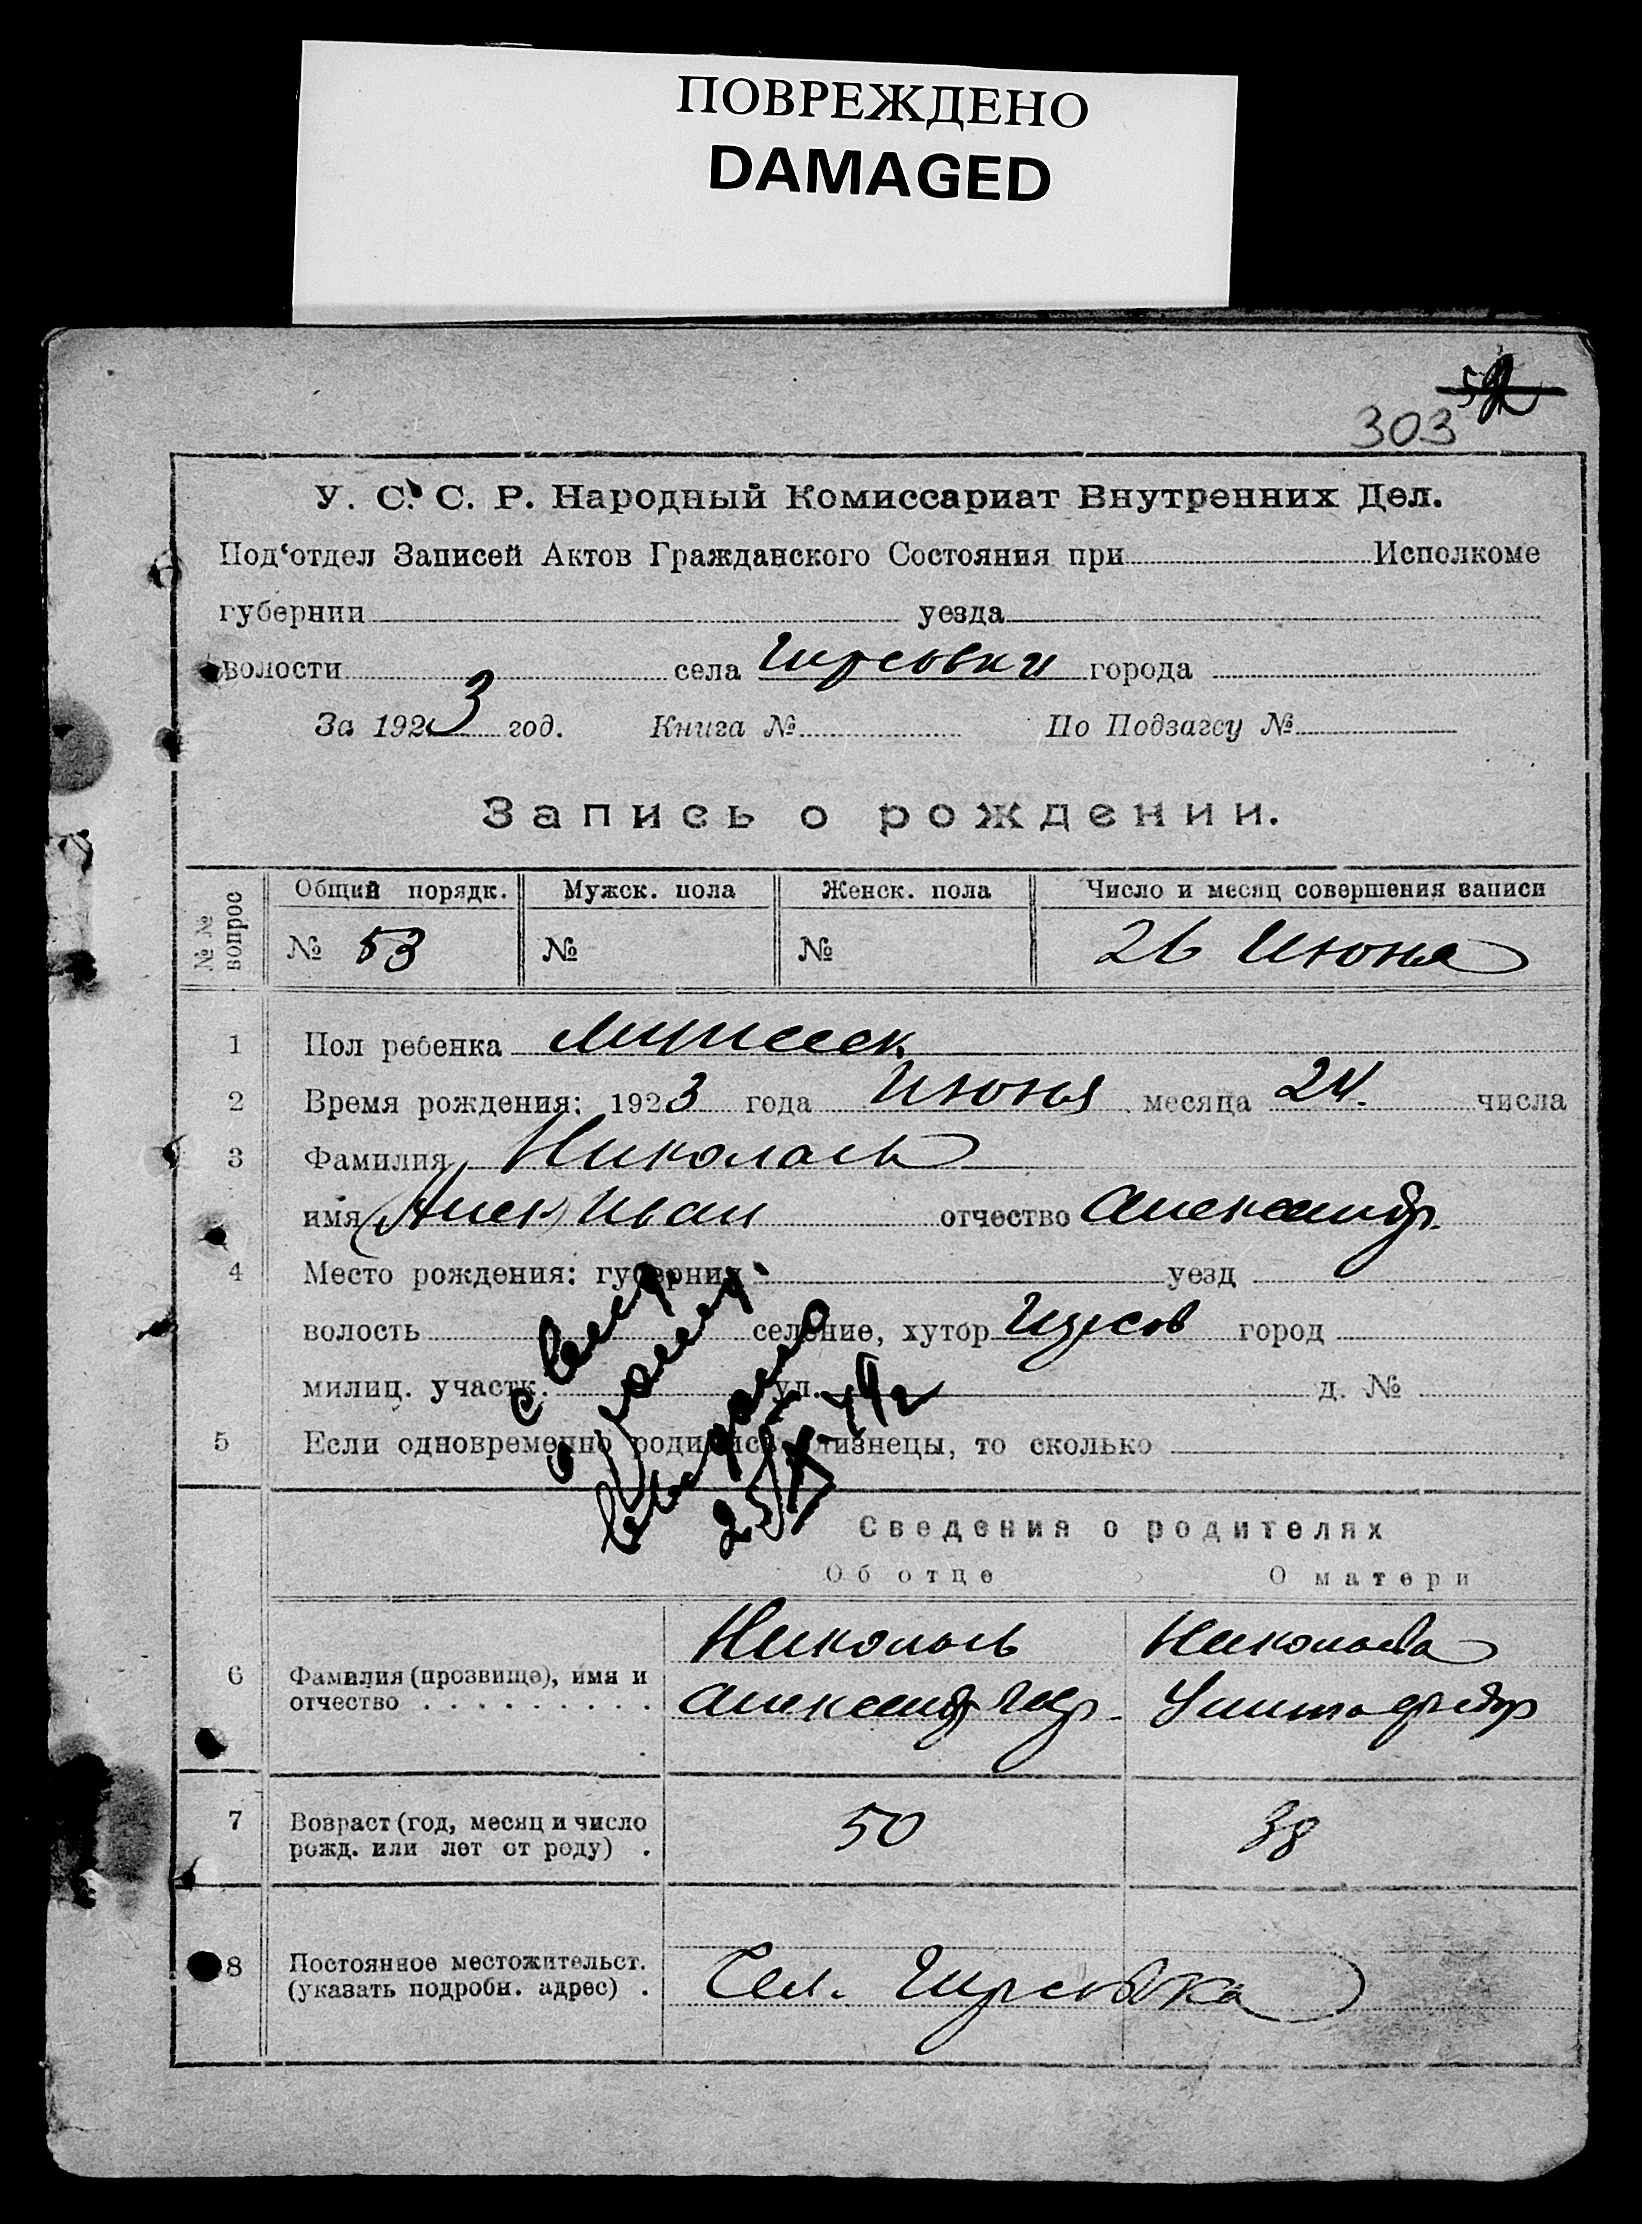 ПОВРЕЖДЕНО
DAMAGED
303
У. С. С. Р. Народный Комиссариат Внутренних Дел.
Под‘отдел Записей Актов Гражданского Состояния при Исполкоме
губернии уезда
волости села города
За 1923 год. Книга № По Подзагсу №
Запись о рождении.
№ № вопрос Общий порядк. Мужск. пола Женск. пола Число и месяц совершения записи
№ 53 № № 26 Июня
1 Пол ребенка Мужеск.
2 Время рождения: 1923 года Июня месяца 24. числа
3 Фамилия
имя (Алек) Иван отчество Александр.
4 Место рождения: губерния уезд
волость селение, хутор город
милиц. участк. ул. д. №
5 Если одновременно родились близнецы, то сколько
Сведения о родителях
Об отце О матери
6 Фамилия (прозвище), имя и
отчество Александр
7 Возраст (год, месяц и число
рожд. или лет от роду) . 50 38
8 Постоянное местожительст.
(указать подробн. адрес) . Сел.